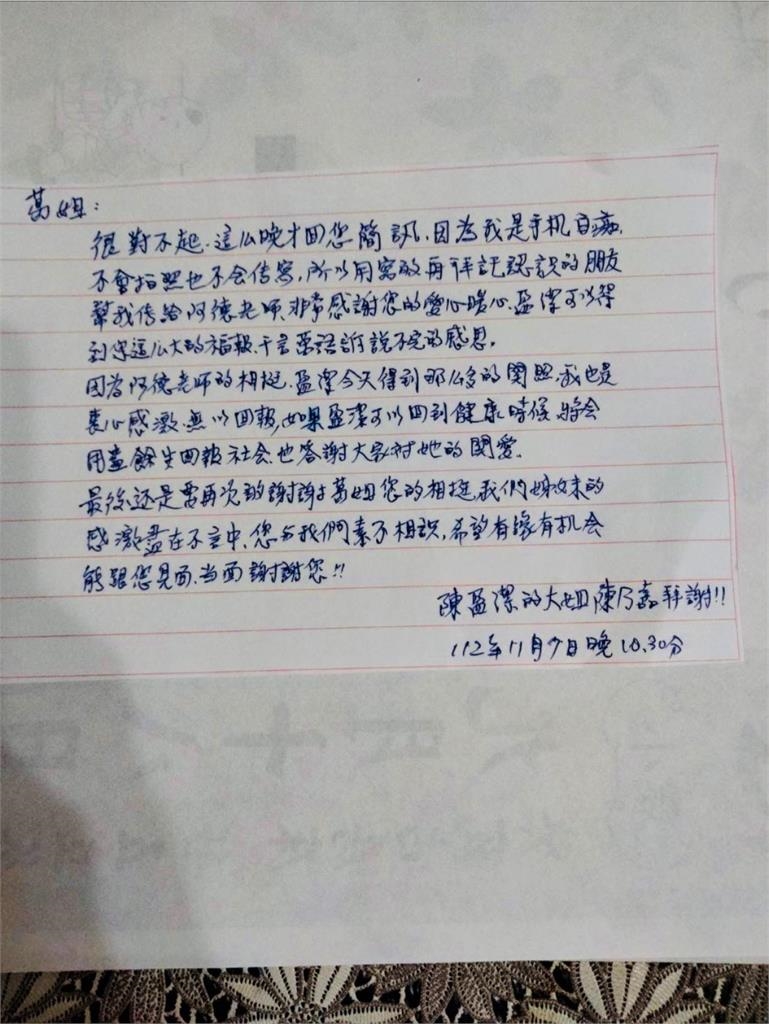 葛姐:
很對不起.這么晚才回您簡訊.因為我是手机白痴.
不會拍照也不会传寫,所以用寫的再拜託認识的朋友
幫我传给阿德老师.非常感謝您的愛心暖心.盈潔可以得
到您這么大的福報.千言萬語訴說不完的感恩.
因為阿德老师的相挺.盈潔今天得到那么多的関照.我也是
衷心感激.無以回報,如果盈潔可以回到健康時候.將会
用盡餘生回報社会.也答謝大家对她的関愛.
最後还是要再次的謝謝葛姐您的相挺.我們姊妹的
感激盡在不言中.您与我們素不相识,希望有緣有机会
能跟您見面.当面謝謝您!!
陳盈潔的大姐陳乃嘉拜謝!!
112年11月 日晚10.30分